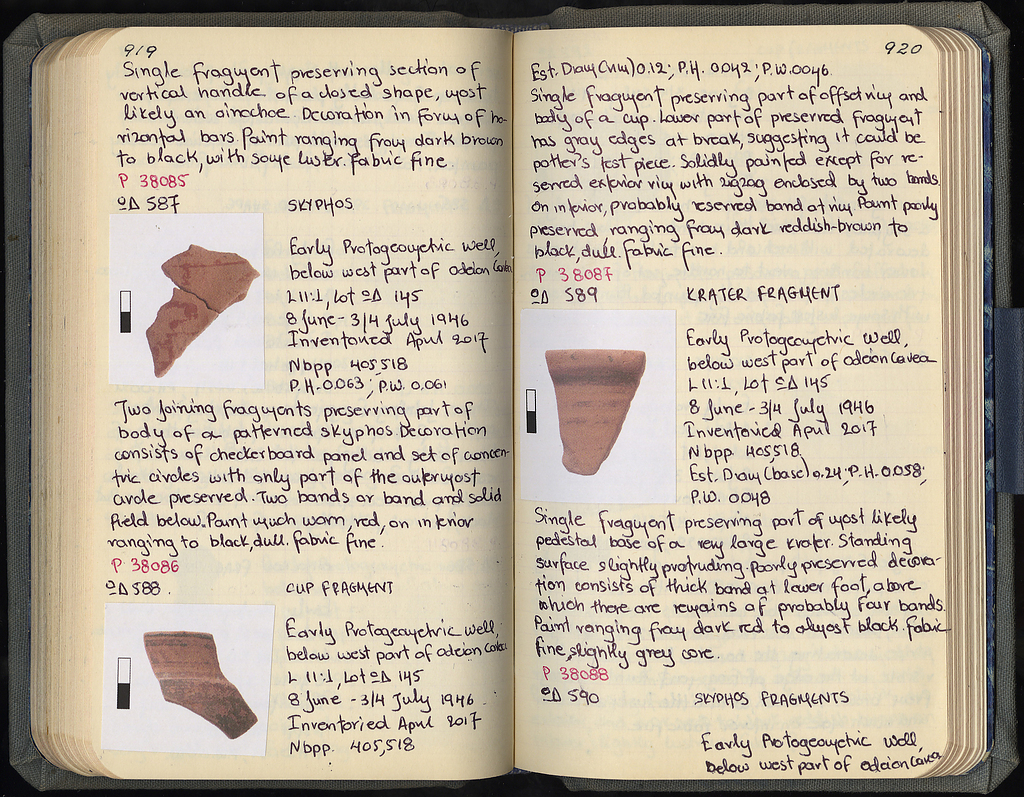 919
Single fragment preserving section of
vertical handle of a closed shape, most
likely an oinochoe. Decoration in form of ho-
rizontal bars. Paint ranging from dark brown
to black, with some luster. Fabric fine
P 38085
ΟΔ 587 SKYPHOS
Early Protogeometric well,
below west part of odeion Cavea
L 11:1, Lot ΟΔ 145
8 June - 3/4 July 1946
Inventoried April 2017
Nbpp 405,518
P.H. 0.063; P.W. 0.061
Two joining fragments preserving part of
body of a patterned skyphos. Decoration
consists of checkerboard panel and set of concen-
tric circles with only part of the outermost
circle preserved. Two bands or band and solid
field below. Paint much worn, red, on interior
ranging to black, dull. Fabric fine.
P 38086
ΟΔ 588 CUP FRAGMENT
Early Protogeometric well,
below west part of odeion Cavea
L 11:1, Lot ΟΔ 145
8 June - 3/4 July 1946
Inventoried April 2017
Nbpp. 405,518
920
Est. Diam (rim) 0.12; P.H. 0.042; P.W. 0.046
Single fragment preserving part of offset rim and
body of a cup. Lower part of preserved fragment
has gray edges at break, suggesting it could be
potter's test piece. Solidly painted except for re-
served exterior rim with zigzag enclosed by two bands.
On interior, probably reserved band at rim. Paint poorly
preserved ranging from dark reddish-brown to
black, dull. Fabric fine.
P 38087
ΟΔ 589 KRATER FRAGMENT
Early Protogeometric well,
below west part of odeion Cavea
L 11:1, Lot ΟΔ 145
8 June - 3/4 July 1946
Inventoried April 2017
Nbpp. 405,518
Est. Diam (base) 0.24; P.H. 0.058;
P.W. 0.048
Single fragment preserving part of most likely
pedestal base of a very large krater. Standing
surface slightly protruding. Poorly preserved decora-
tion consists of thick band at lower foot, above
which there are remains of probably four bands.
Paint ranging from dark red to almost black. Fabric
fine, slightly grey core.
P 38088
ΟΔ 590 SKYPHOS FRAGMENTS
Early Protogeometric well,
below west part of odeion Cavea